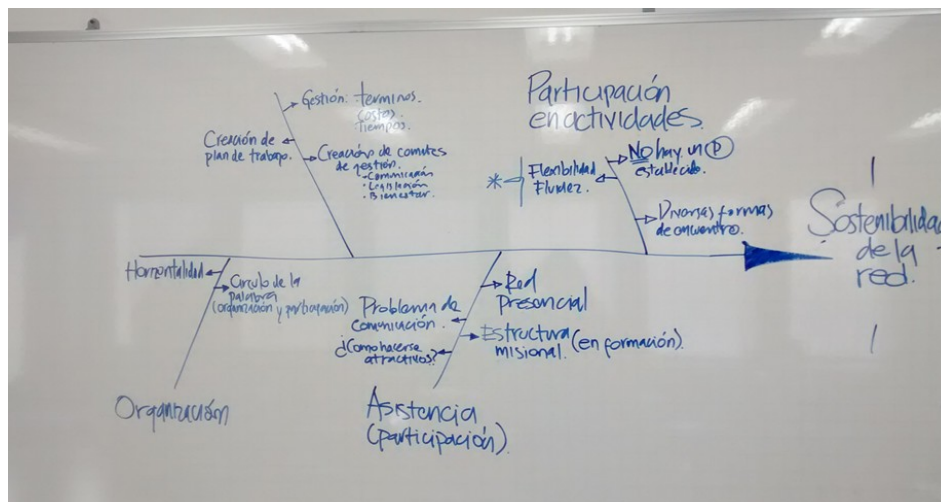 Gestión: terminos.
costos.
tiempos.
Creación de
plan de trabajo.
Creación de comites
de gestión.
• Comunicación
• Legislación
• Bienestar.
Participación
en actividades.
NO hay un P
establecido.
* Flexibilidad
Fluidez.
Diversas formas
de encuentro.
Sostenibilidad
de la
red.
Horizontalidad
Circulo de la
palabra
(organización y participación)
Organización
Red
Presencial
Problema de
comunicación.
Estructura
misional. (en formación).
¿Como hacerse
attractivos?
Asistencia
(participación).